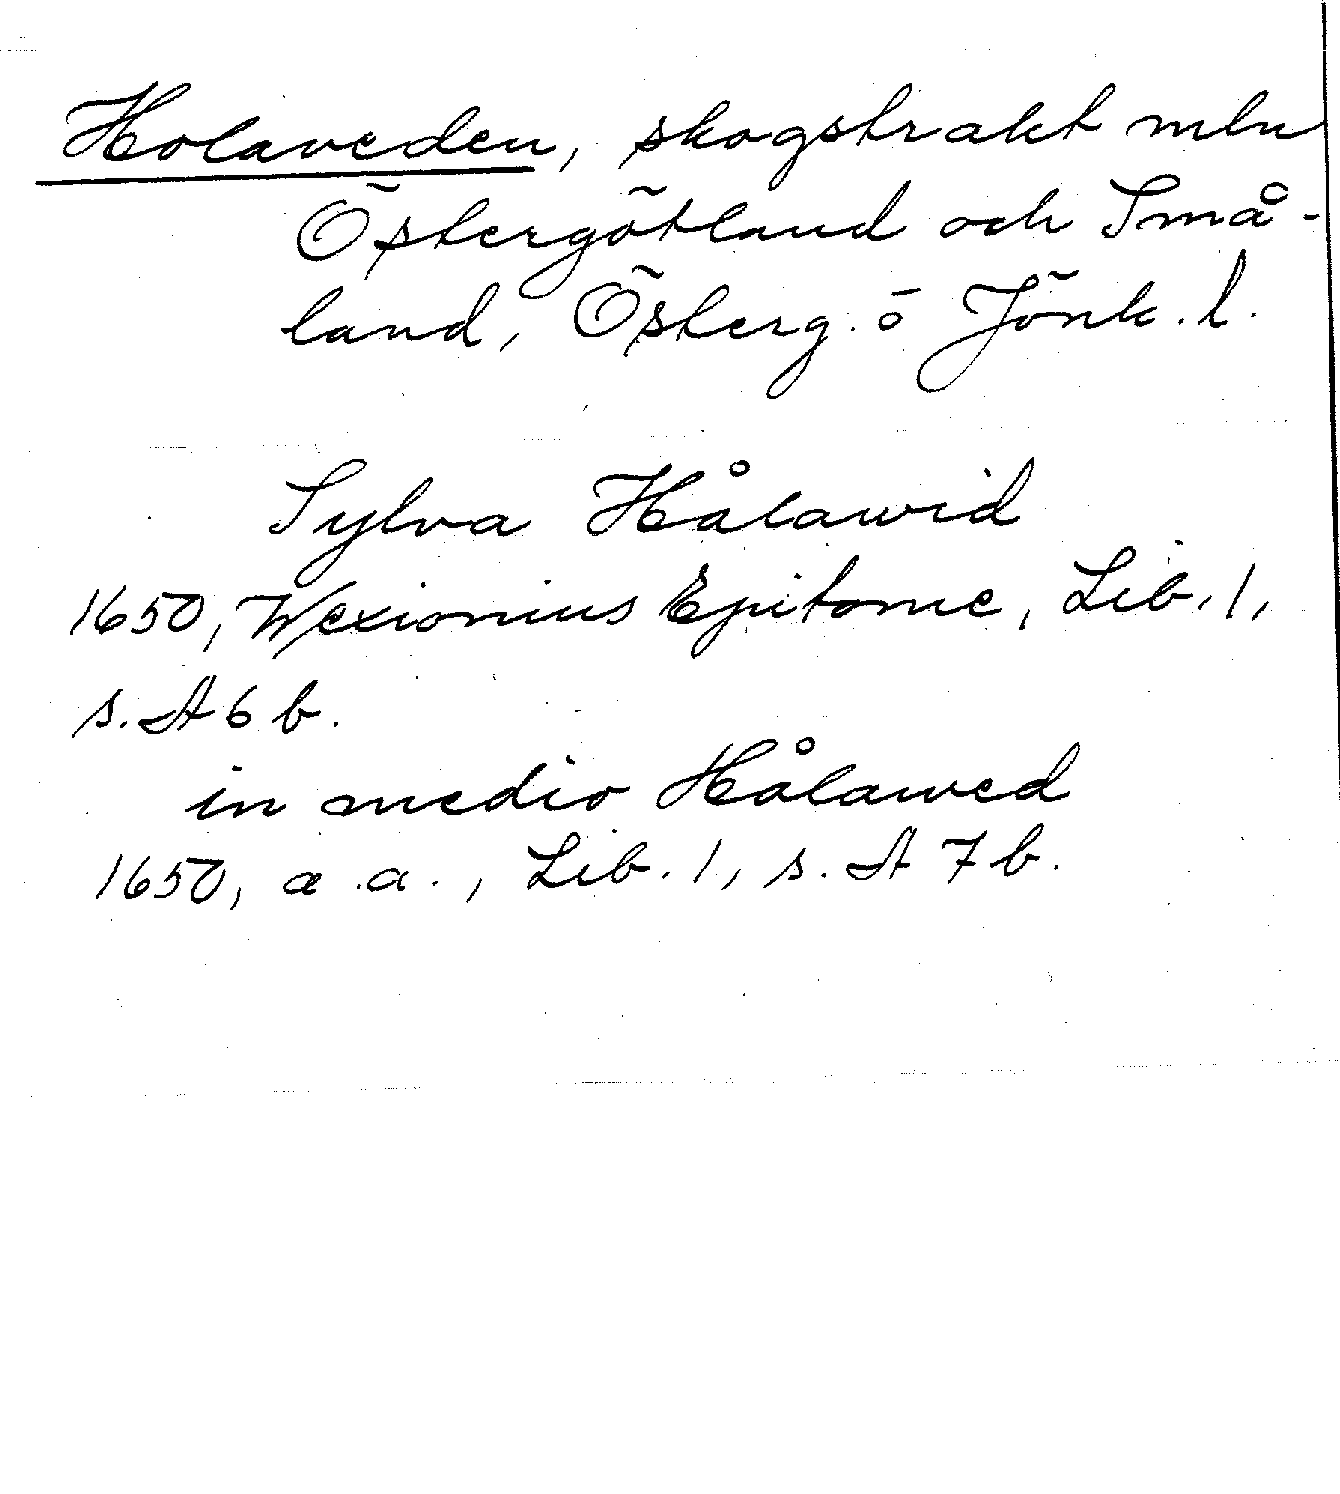 Holaveden, skogstrakt mln
Östergötland och Små-
land, Österg. o Jönk. l.
Sylva Hålawid
1650, Wexionius Epitome, Lib. 1,
s. A 6 b.
in medio Hålawed
1650, a. a., Lib. 1, s. A 7 b.